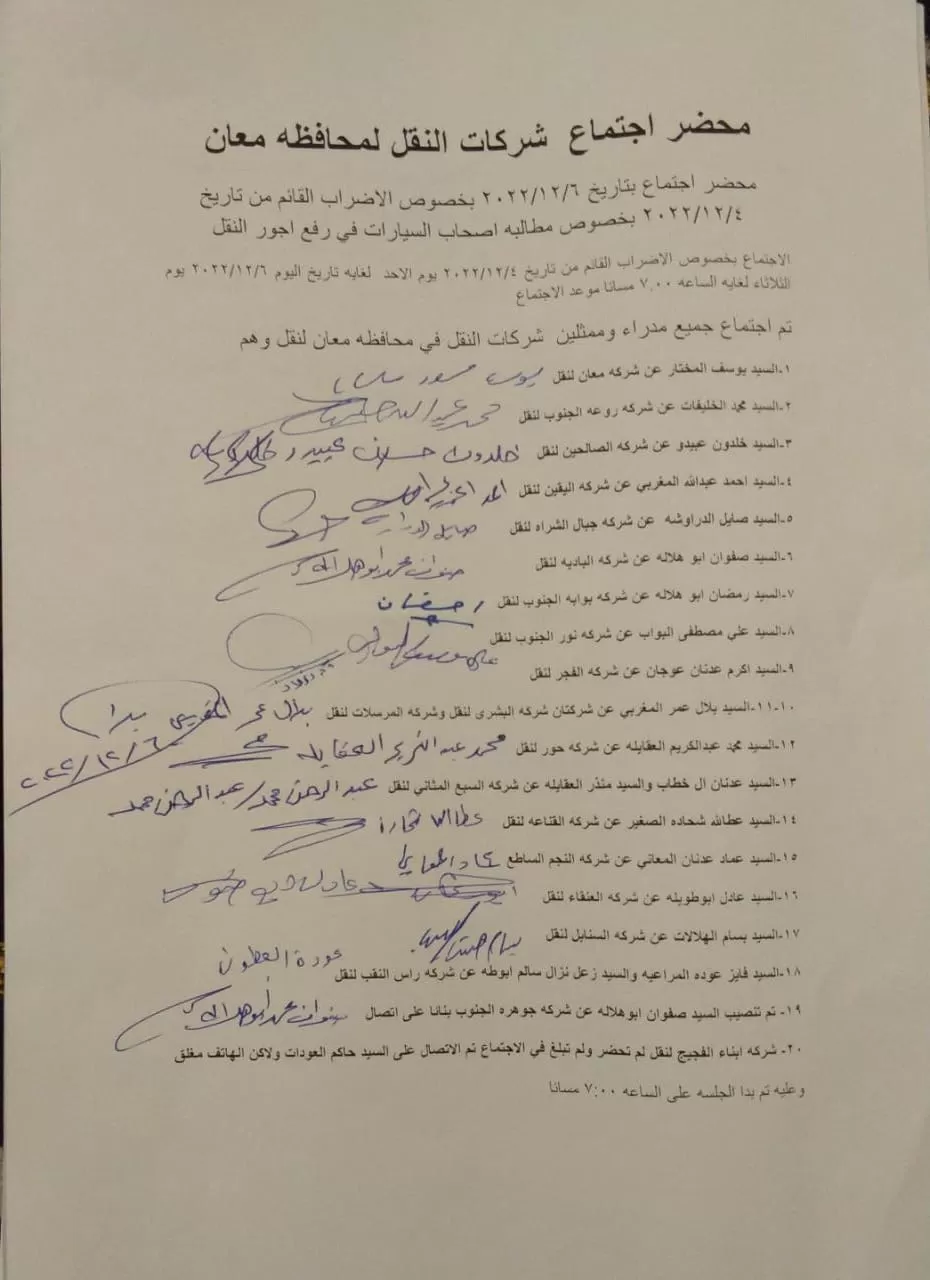 محضر اجتماع شركات النقل لمحافظه معان
محضر اجتماع بتاريخ ٢٠٢٢/١٢/٦ بخصوص الاضراب القائم من تاريخ
٢٠٢٢/١٢/٤ بخصوص مطالبه اصحاب السيارات في رفع اجور النقل
الاجتماع بخصوص الاضراب القائم من تاريخ ٢٠٢٢/١٢/٤ يوم الاحد لغايه تاريخ اليوم ٢٠٢٢/١٢/٦ يوم
الثلاثاء لغايه الساعه ٧.٠٠ مسانا موعد الاجتماع
تم اجتماع جميع مدراء وممثلين شركات النقل في محافظه معان لنقل وهم
١-السيد يوسف المختار عن شركه معان لنقل
٢-السيد محمد الخليفات عن شركه روعه الجنوب لنقل محمد عبدالله
٣-السيد خلدون عبيدو عن شركه الصالحين لنقل خلدون حسان عبيدو
٤-السيد احمد عبدالله المغربي عن شركه اليقين لنقل
٥-السيد صايل الدراوشه عن شركه جبال الشراه لنقل صايل
٦-السيد صفوان ابو هلاله عن شركه الباديه لنقل صفوان محمد ابوهلاله
٧-السيد رمضان ابو هلاله عن شركه بوابه الجنوب لنقل رمضان
٨-السيد علي مصطفى البواب عن شركه نور الجنوب لنقل علي مصطفى البواب
٩-السيد اكرم عدنان عوجان عن شركه الفجر لنقل
١٠-١١-السيد بلال عمر المغربي عن شركتان شركه البشرى لنقل وشركه المرسلات لنقل بلال عمر المغربي
٢٠٢٢/١٢/٦
١٢-السيد محمد عبدالكريم العقايله عن شركه حور لنقل محمد عبد الكريم العقايله
١٣-السيد عدنان ال خطاب والسيد منذر العقايله عن شركه السبع المثاني لنقل عبد الرحمن حمد/عبد الرحمن حمد
١٤-السيد عطالله شحاده الصغير عن شركه القناعه لنقل عطالله شحاده
١٥-السيد عماد عدنان المعاني عن شركه النجم الساطع عماد المعاني
١٦-السيد عادل ابوطويله عن شركه العنقاء لنقل
١٧-السيد بسام الهلالات عن شركه السنابل لنقل بسام
١٨-السيد فايز عوده المراعيه والسيد زعل نزال سالم ابوطه عن شركه راس النقب لنقل عودة
١٩- تم تنصيب السيد صفوان ابوهلاله عن شركه جوهره الجنوب بنانا على اتصال صفوان محمد ابوهلاله
٢٠- شركه ابناء الفجيج لنقل لم تحضر ولم تبلغ في الاجتماع تم الاتصال على السيد حاكم العودات ولاكن الهاتف مغلق
وعليه تم بدا الجلسه على الساعه ٧:٠٠ مسانا